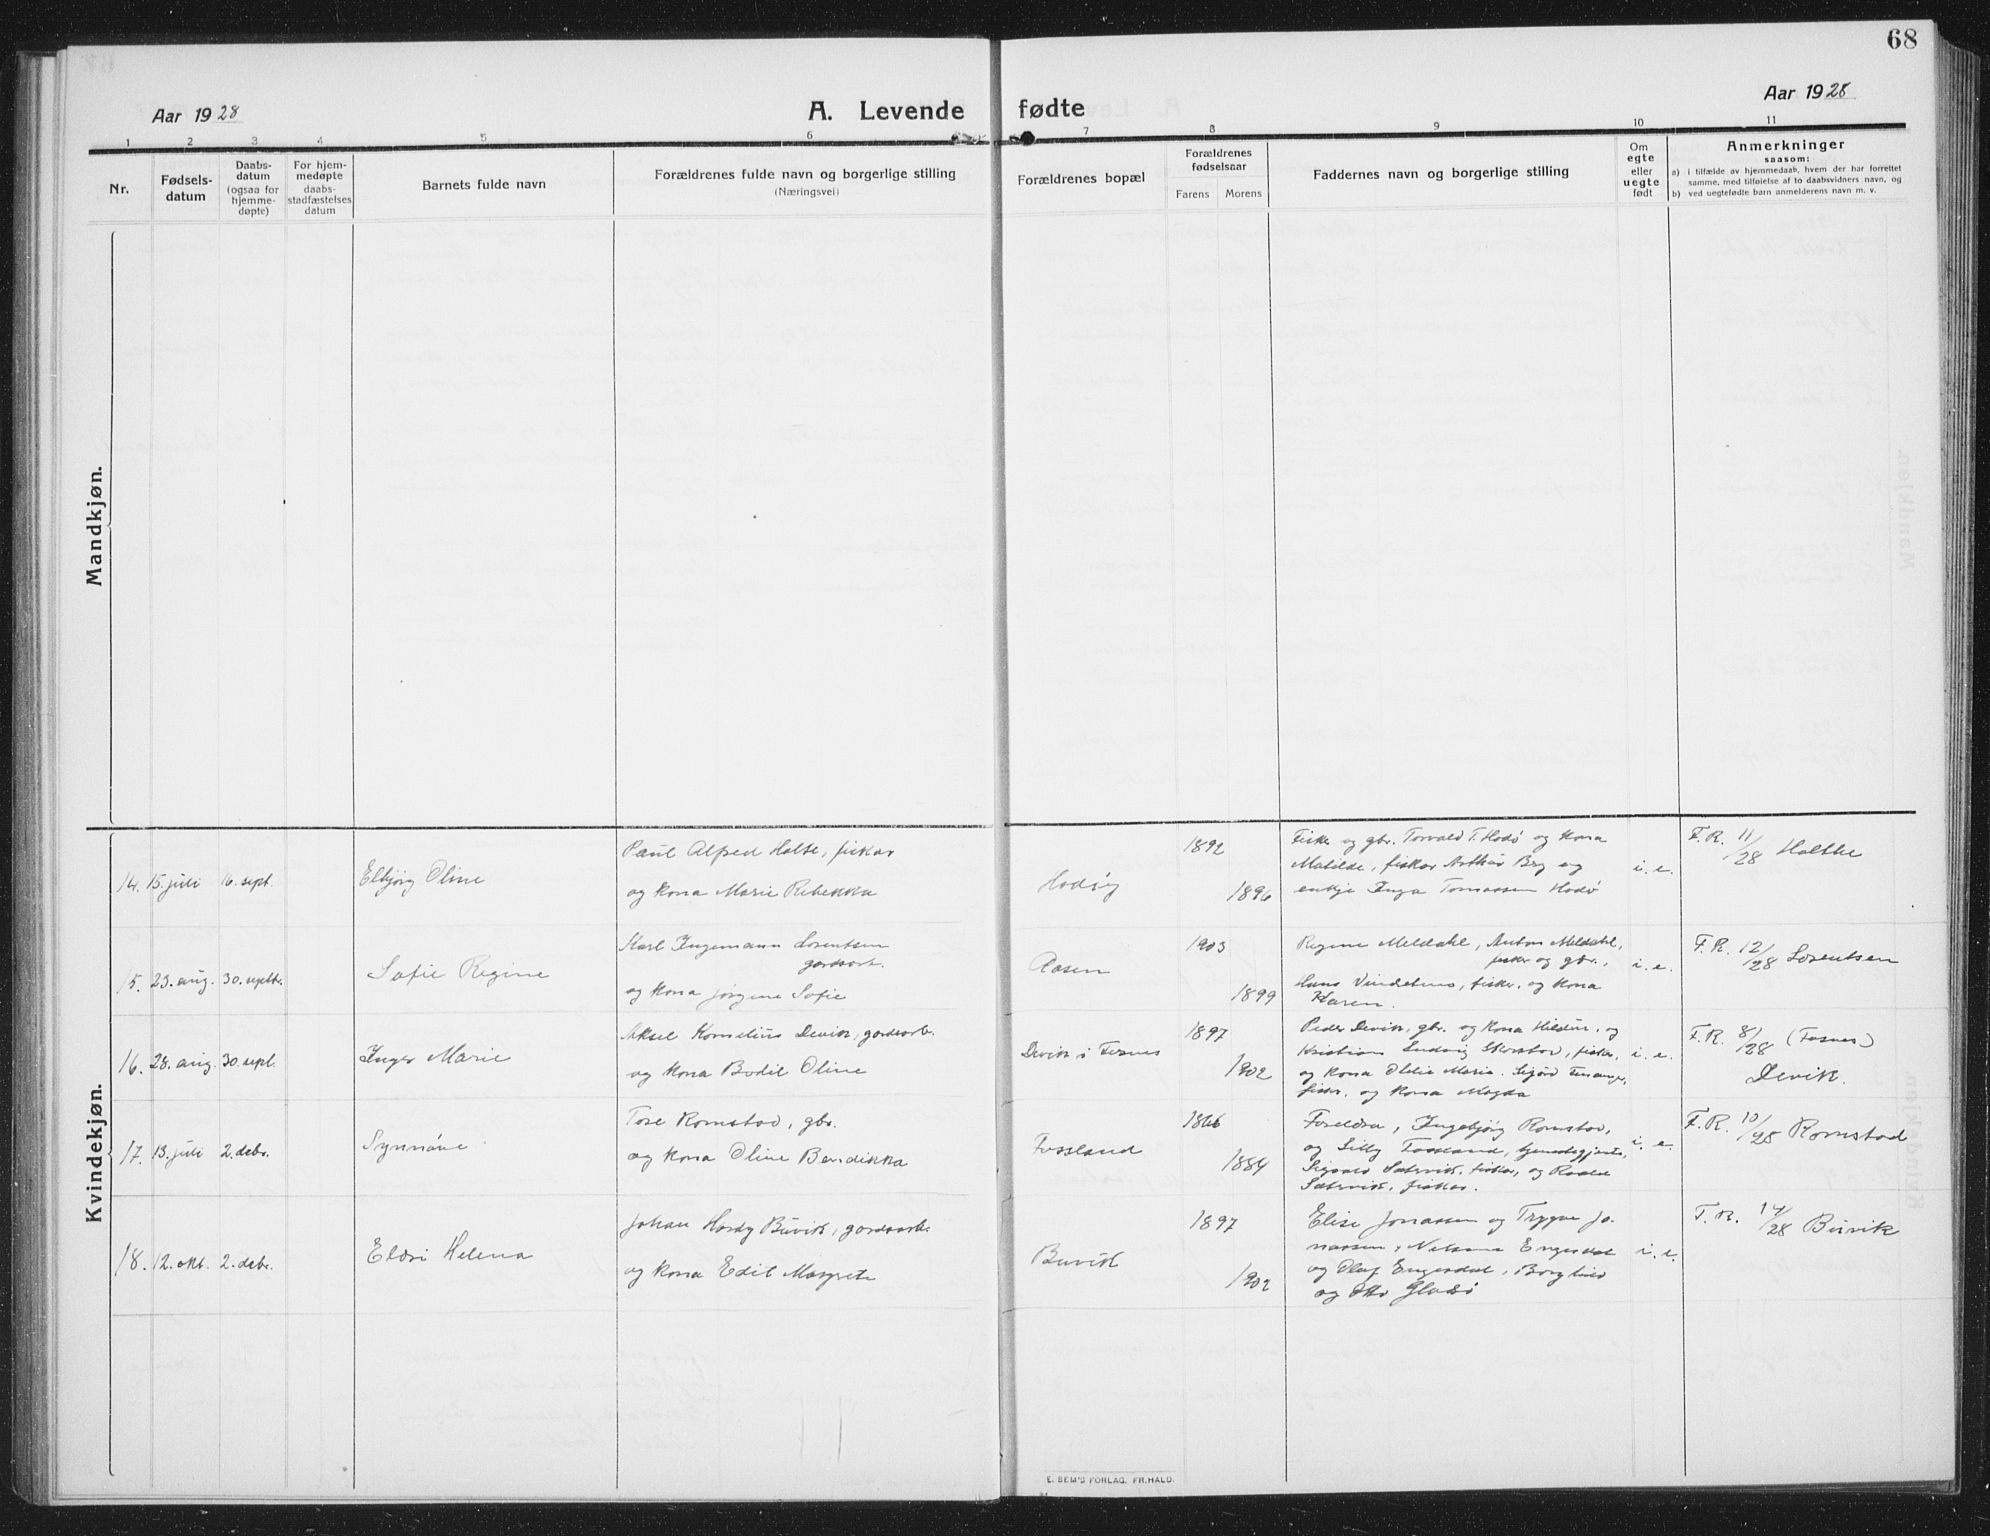 68
Aar 1928
A. Levende fødte
Aar 1928
1 2 3 4 5 6 7 8 9 10 11
Nr.
Fødsels-
datum
Daabs-
datum
(ogsaa for
hjemme-
døpte)
For hjem-
medøpte
daabs-
stadfæstelses
datum
Barnets fulde navn
Forældrenes fulde navn og borgerlige stilling
(Næringsvei)
Forældrenes bopæl
Forældrenes
fødselsaar
Farens Morens
Faddernes navn og borgerlige stilling
Om
egte
eller
uegte
født
Anmerkninger
saasom:
a) i tilfælde av hjemmedaab, hvem der har forrettet
samme, med tilføielse af to daabsvidners navn, og
b) ved uegtefødte barn anmelderens navn m. v.
Mandkjøn.
Kvindekjøn.
14. 15. juli 16. sept. Elbjørg Oline
Paul Alfred Holte, fiskar
og kona Marie Rebekka
Hodøy
1892
1896
Fisker og gbr. Torvald T. Hodø og kona
Matilde, fiskar Arthur Bry og
enkje Inga Tomassen Hodø
i. e.
F. R. 11/28 Holthe
15. 23. aug. 30. septbr. Sofie Regine
Karl Ingemann Lorentsen
gardsarb.
og kona Jørgine Sofie
Aasen
1903
1899
Regine Meldahl, Anton Meldahl,
fisker og gbr.,
Hans Vindetens, fisker, og kona
Karen.
i. e.
F. R. 12/28 Lorentsen
16. 28. aug. 30. sept. Inger Marie
Aksel Kornelius Devik, gardsarb.
og kona Bodil Oline
Devik i Fosnes
1897
1902
Peder Devik, gbr. og kona Hildur, og
Kristian Ludvig Skorstad, fisker,
og kona Olelia Maria. Sigurd
fisker, og kona Magda
i. e.
F. R. 8/28 (Fosnes)
Devik.
17. 13. juli 2. debr. Synnøve
Tore Romstad, gbr.
og kona Oline Bendikka
Fossland
1886
1884
Foreldra, Ingebjørg Romstad,
og Lilly Fossland, tjenestegjente,
Sigvald Sætervik, fisker, og
Sætervik, fiskar.
i. e.
F. R. 10/28 Romstad
18. 12. okt. 2. debr. Eldri Helena
Johan Hardy Buvik, gardsarb.
og kona Edit Margrete
Buvik
1897
1902
Elise Jonassen og Trygve Jo-
nassen, Nelsine Engesdal
og Olaf Engesdal, Borghild
og Otto Gladsø
i. e.
F. R. 14/28 Buvik
E. SEM'S FORLAG, FR.HALD.